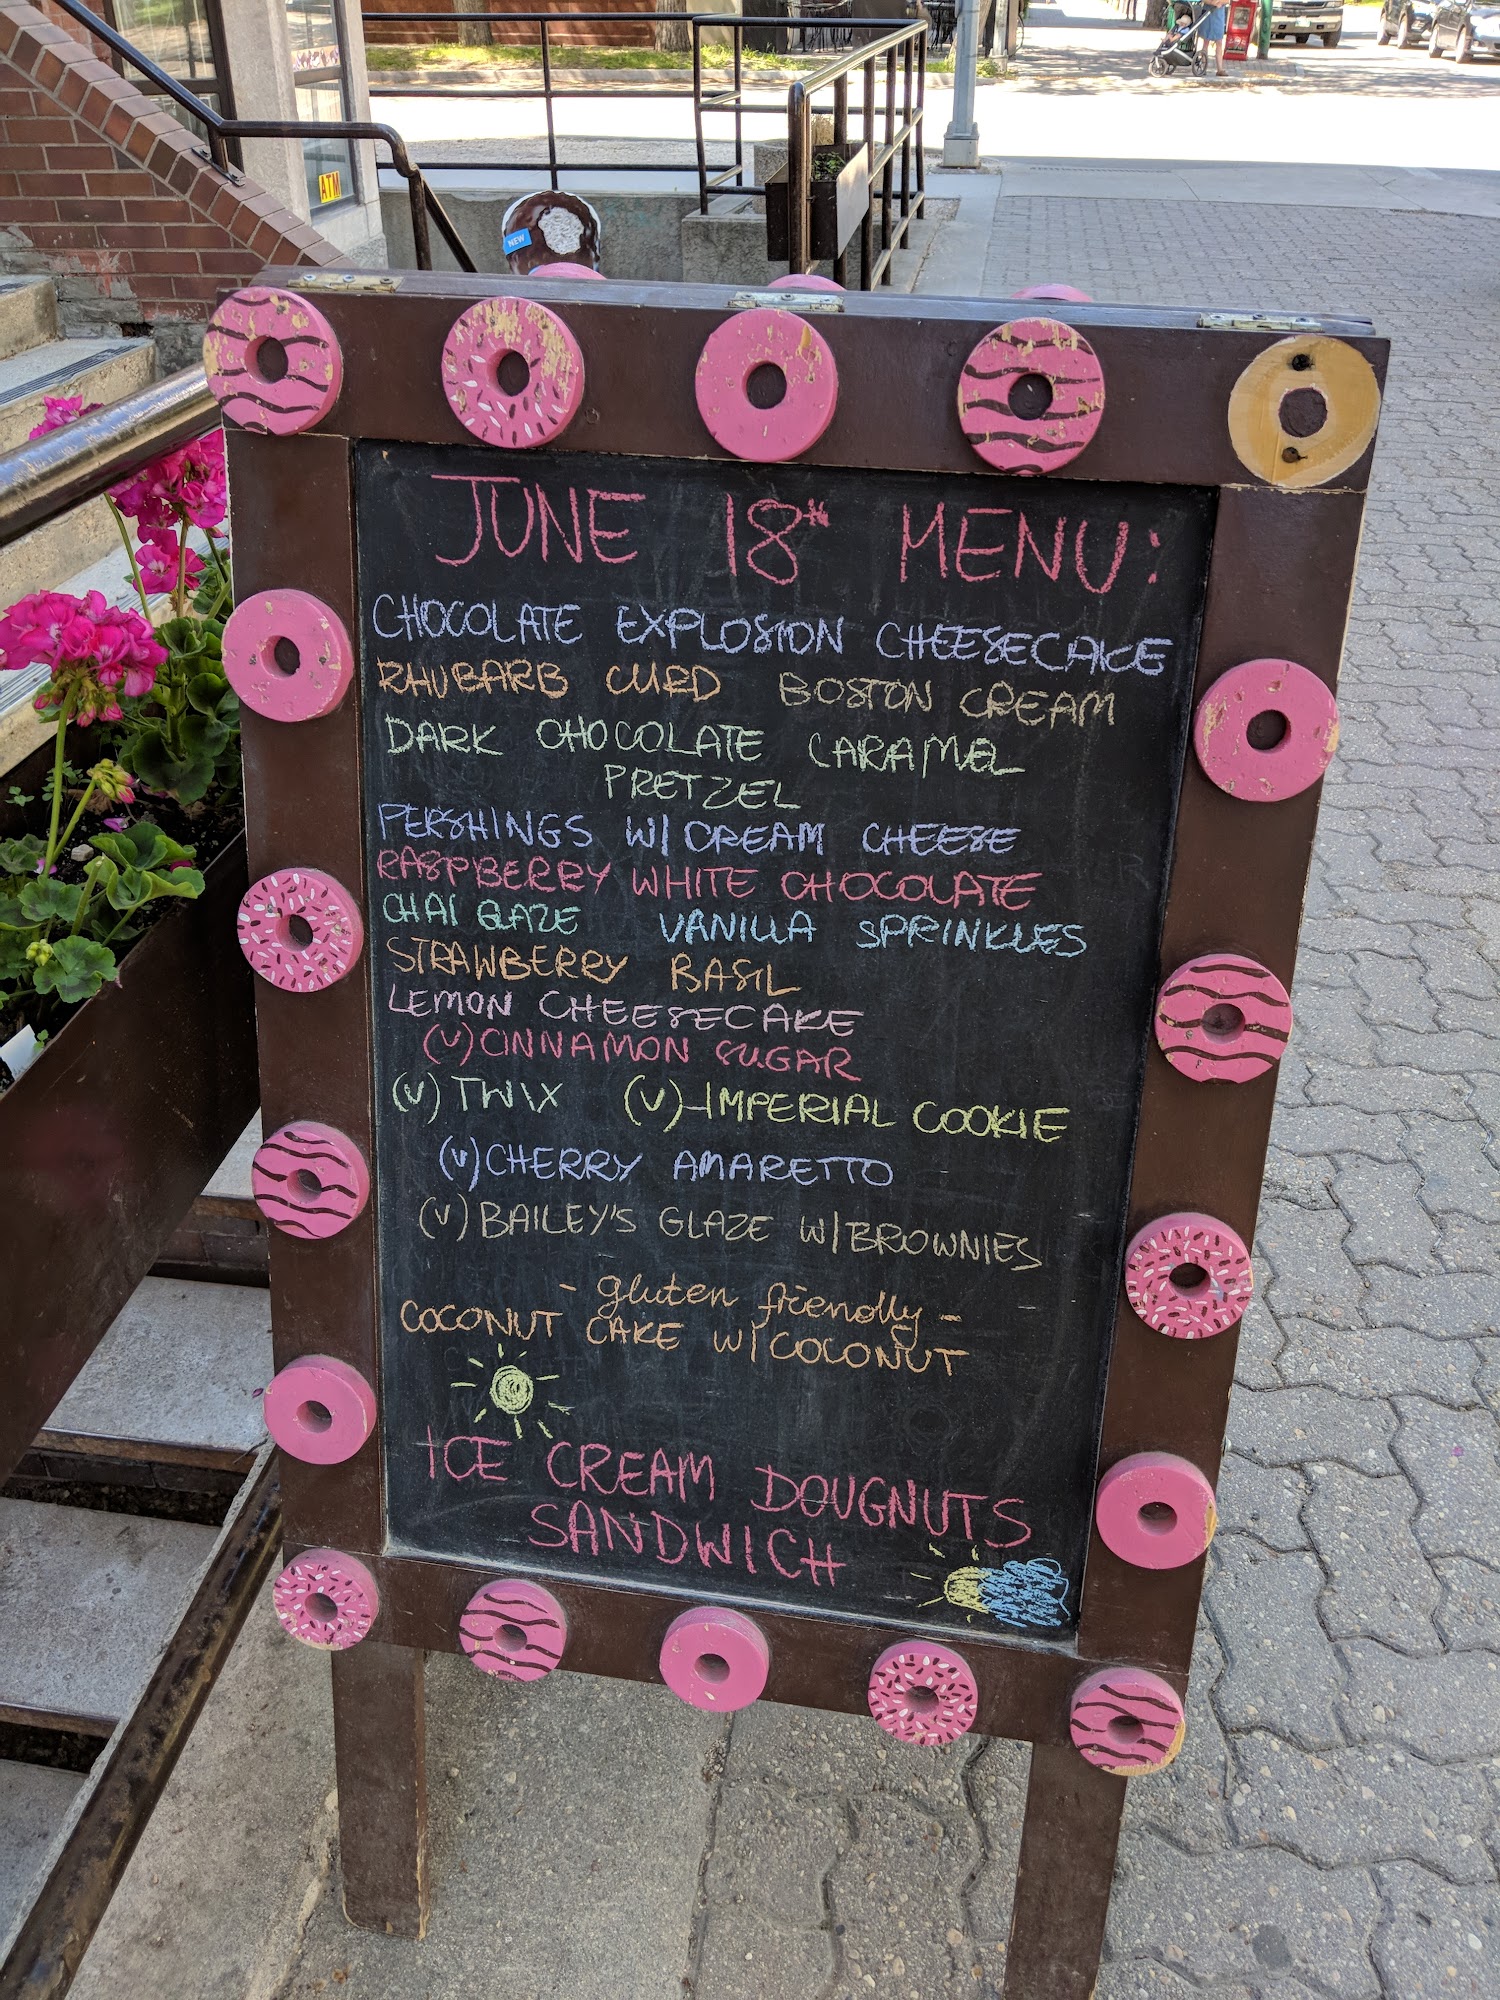 ATM
NEW
JUNE 18th MENU:
CHOCOLATE EXPLOSION CHEESECAKE
RHUBARB CURD BOSTON CREAM
DARK CHOCOLATE CARAMEL
PRETZEL
PERSHINGS W/ CREAM CHEESE
RASPBERRY WHITE CHOCOLATE
CHAI GLAZE VANILLA SPRINKLES
STRAWBERRY BASIL
LEMON CHEESECAKE
(V) CINNAMON SUGAR
(V) TWIX (V)-IMPERIAL COOKIE
(V) CHERRY AMARETTO
(V) BAILEY'S GLAZE W/ BROWNIES
- gluten friendly -
COCONUT CAKE W/ COCONUT
ICE CREAM DOUGNUTS
SANDWICH